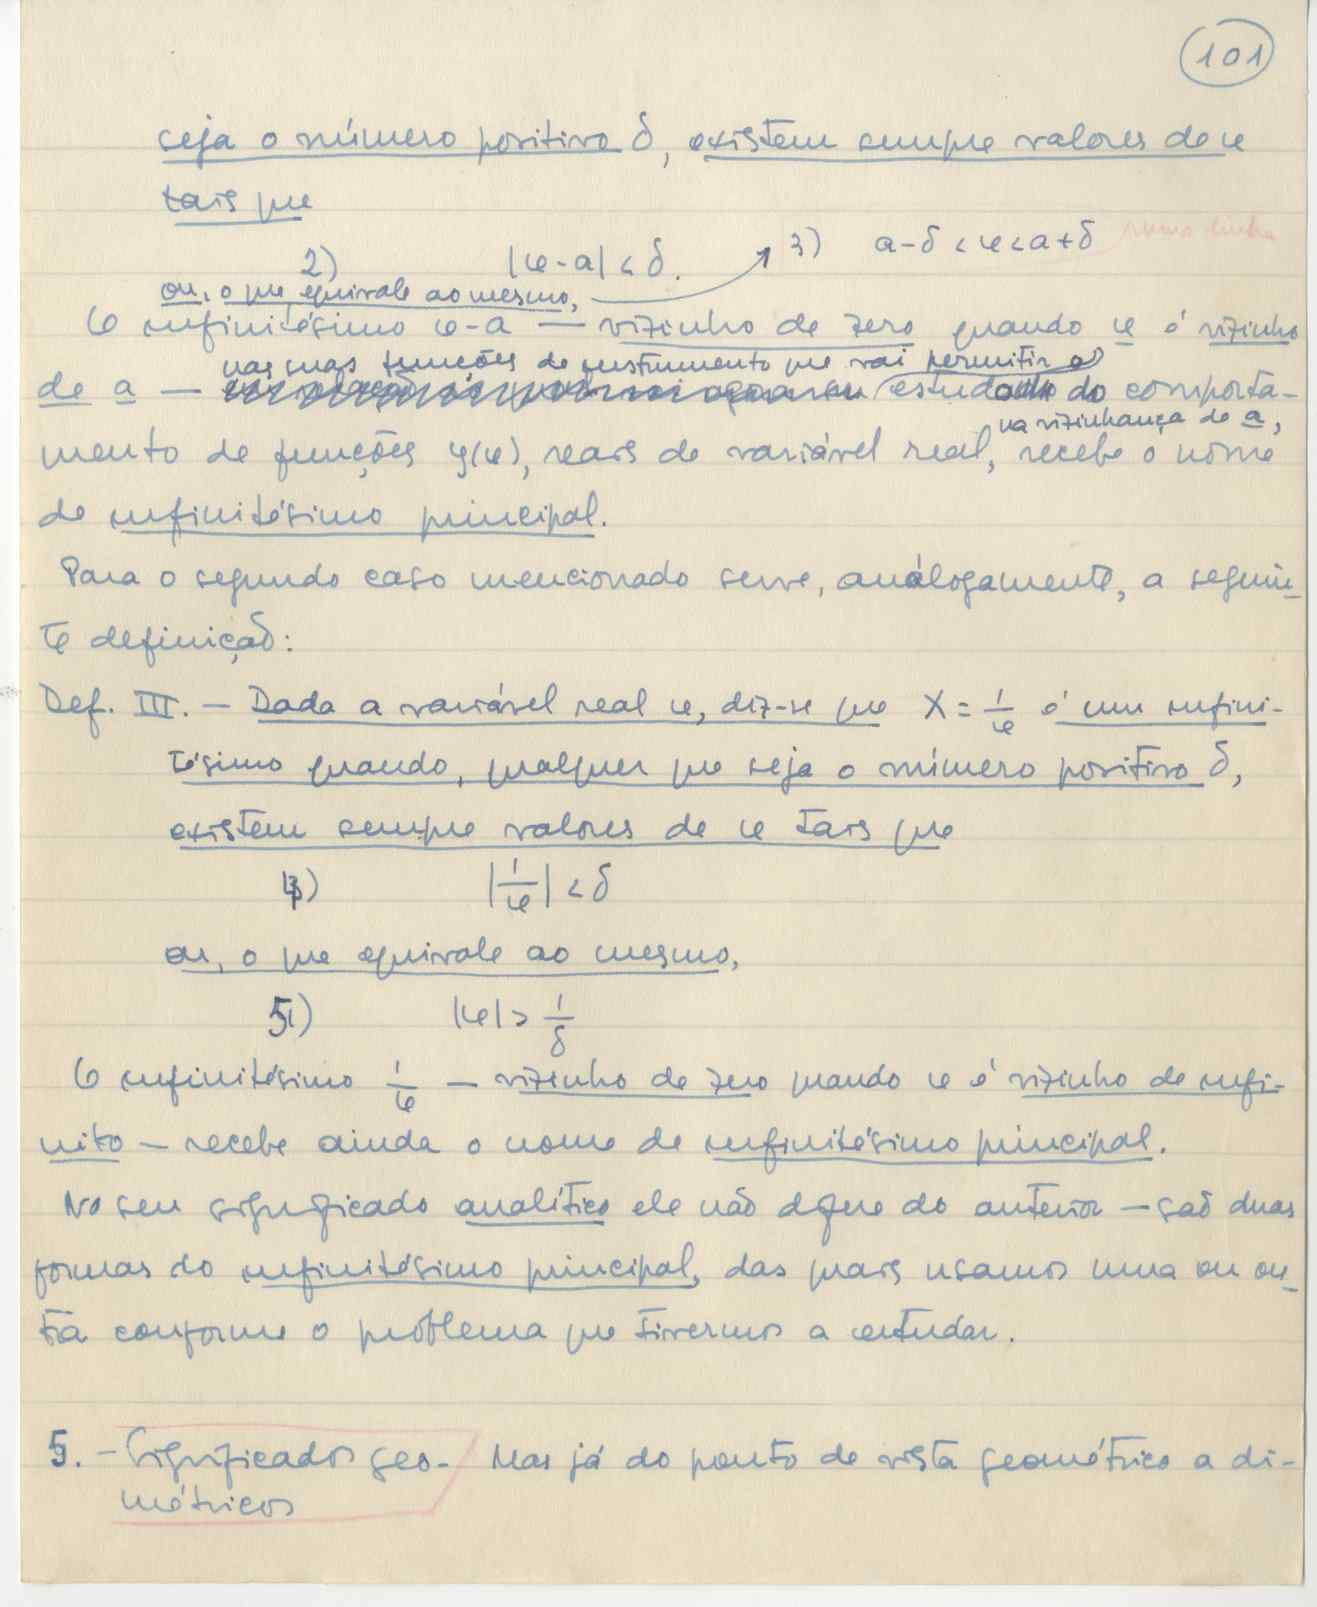 101
seja o número positivo δ, existem sempre valores de x
tais que
2) |x-a| < δ. 3) a-δ < x < a+δ numa linha
ou, o que equivale ao mesmo,
O infinitésimo x-a — vizinho de zero quando x é vizinho
nas suas funções de instrumento que vai permitir o
de a — estudo do comporta-
na vizinhança de a,
mento de funções y(x), reais de variável real, recebe o nome
de infinitésimo principal.
Para o segundo caso mencionado serve, análogamente, a seguin-
te definição:
Def. III. — Dada a variável real x, diz-se que X = 1/x é um infini-
tésimo quando, qualquer que seja o número positivo δ,
existem sempre valores de x tais que
4) |1/x| < δ
ou, o que equivale ao mesmo,
5) |x| > 1/δ
O infinitésimo 1/x — vizinho de zero quando x é vizinho de infi-
nito — recebe ainda o nome de infinitésimo principal.
No seu significado analítico ele não difere do anterior — são duas
formas do infinitésimo principal, das quais usamos uma ou ou-
tra conforme o problema que tivermos a estudar.
5. — Significados geo- Mas já do ponto de vista geométrico a di-
métricos